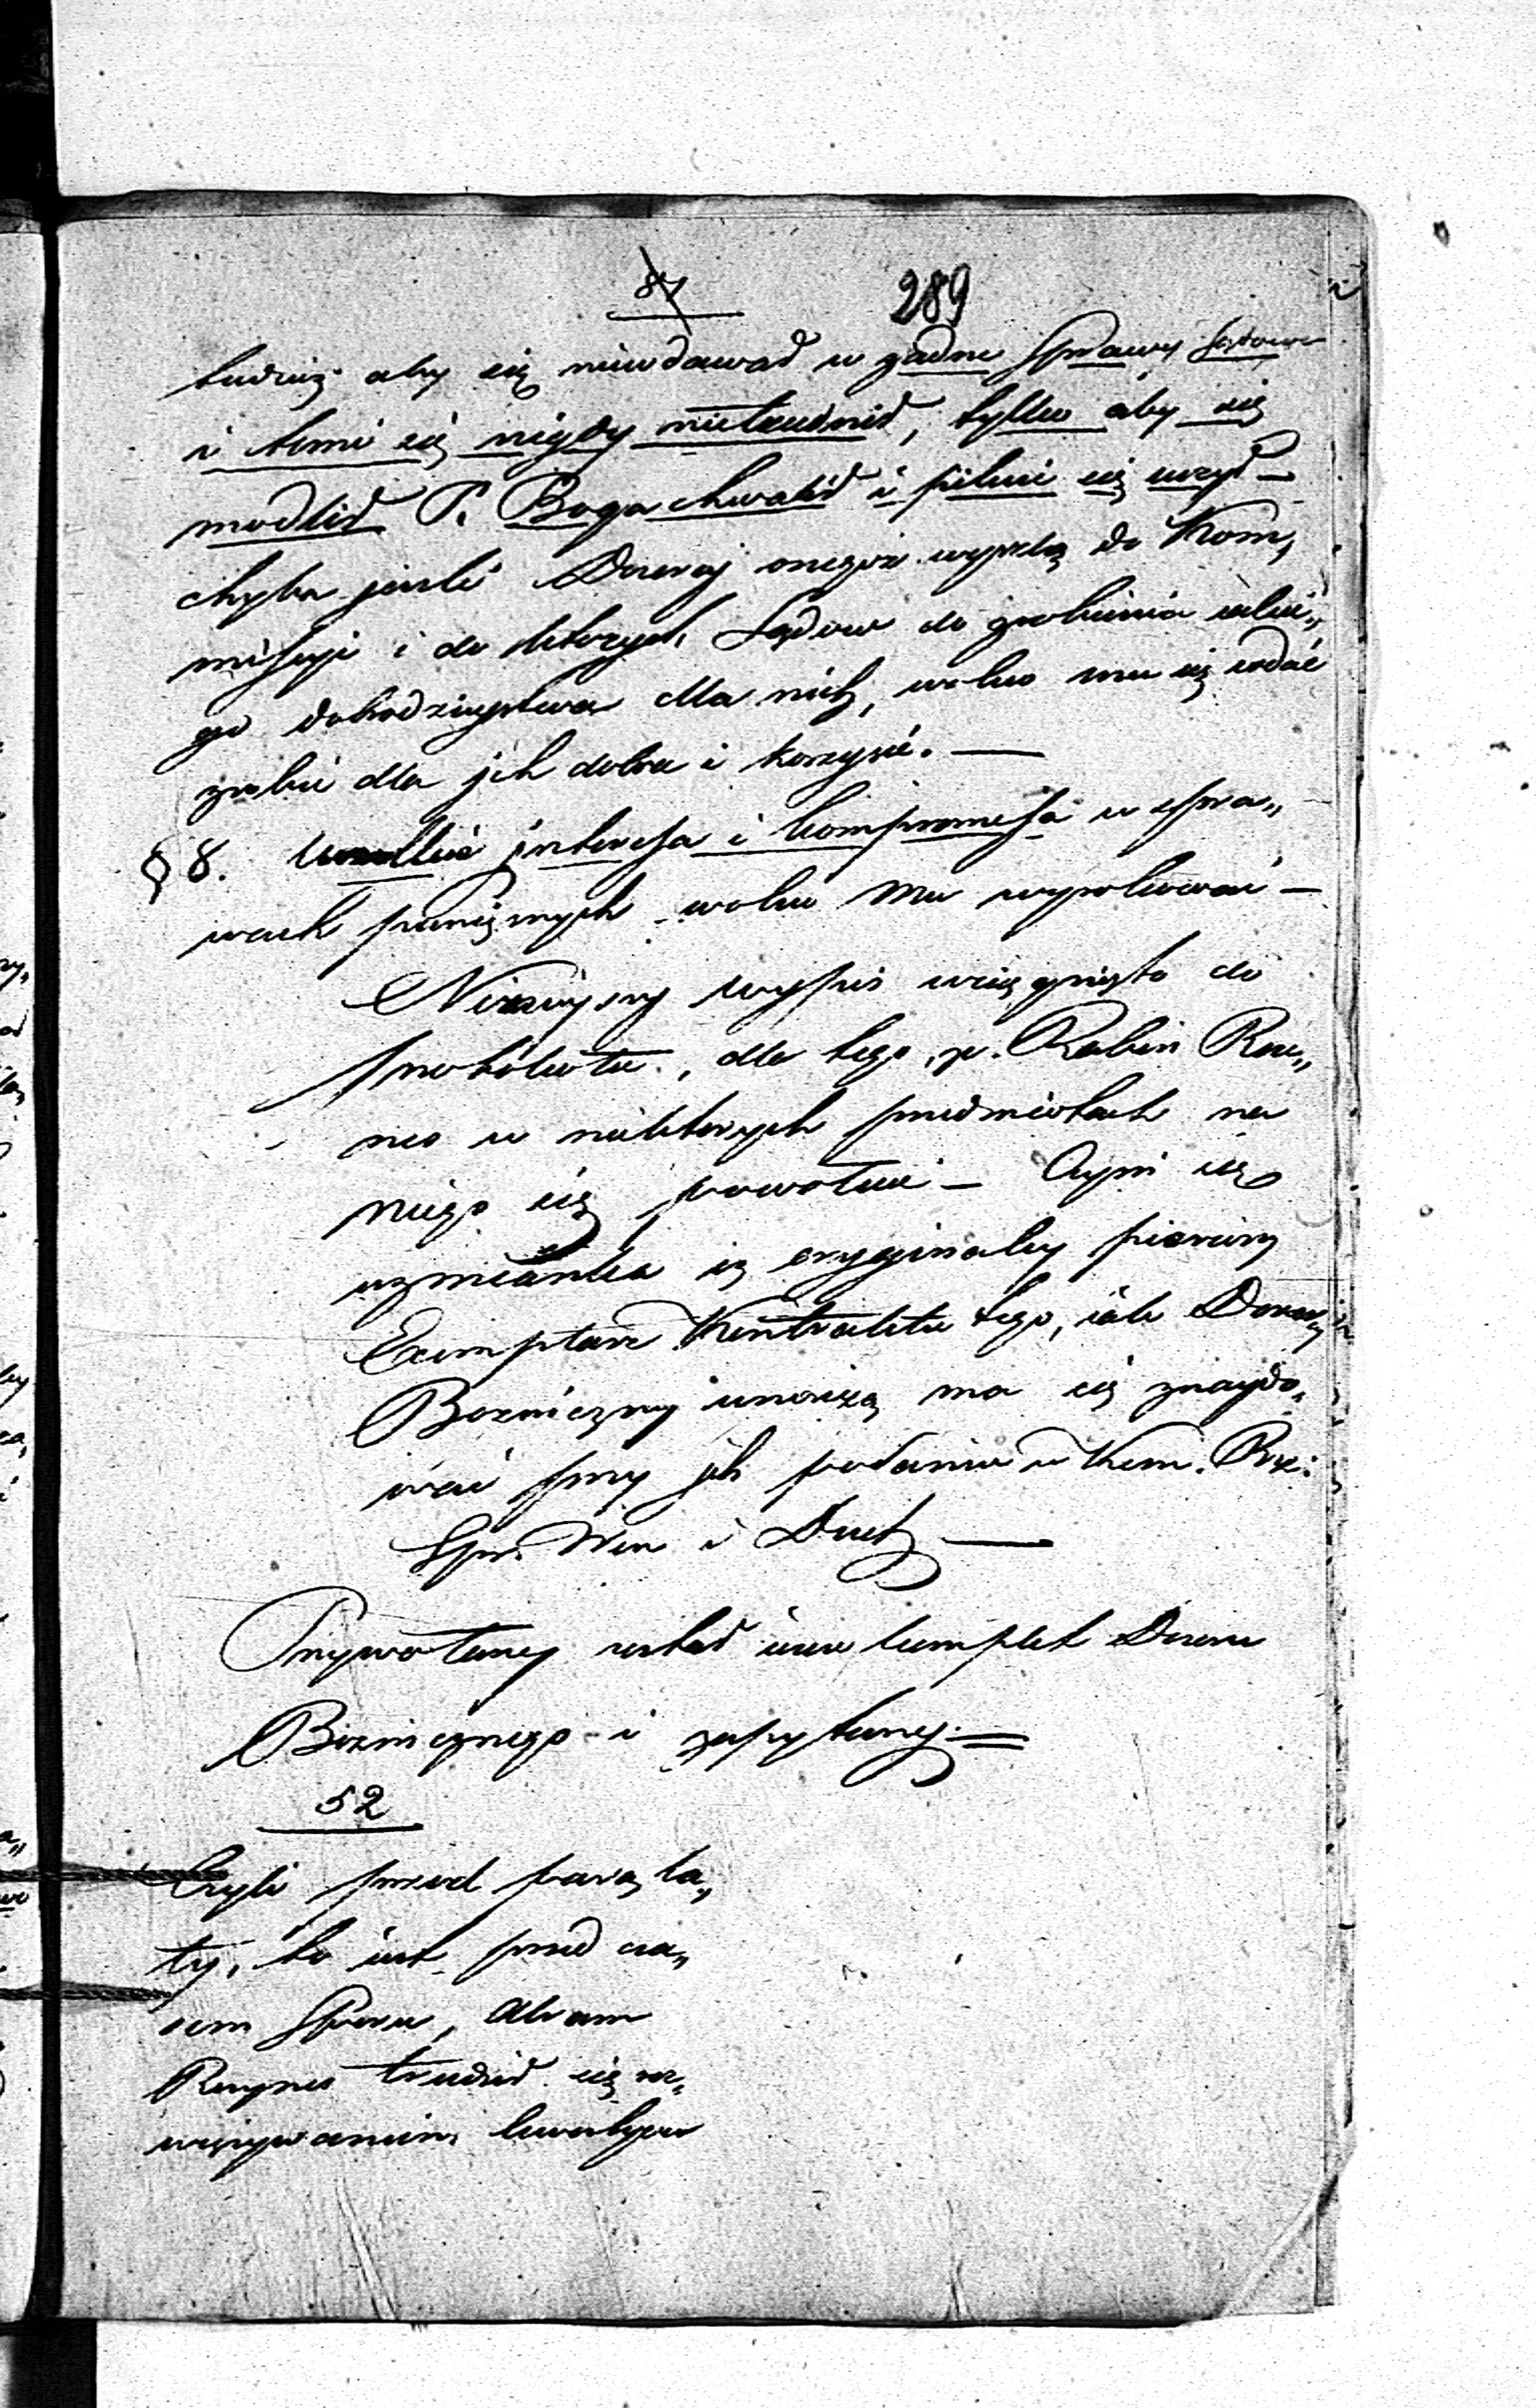 87 289
tudzież aby się niewdawał w żadne Sprawy Sądowe
i temi się nigdy nietrudnił, tylko aby się
modlił P. Boga chwalił i pilnie się uczył —
chyba jeśli Dozory onegoż wyszlą do Kom,
missyi i do których Sądow do zrobienia jakie„
go dobrodziejstwa dla nich, wolno mu się udać
zrobić dla jch dobra i korzyści. —
§ 8. Wszelkie jnteressa i kompromissa w spra„
wach pieniężnych wolno mu wypełniać —
Ninieyszy wypis wciągnięto do
protokołu, dla tego, że Rabin Ray„
nes w niektórych przedmiotach na
niego się powołuie — Czyni się
wzmianka iż oryginalny pierwszy
Exemplarz Kontraktu tego, jak Dozory
Bożniczny wnoszą ma się znaydo„
wać przy jch podaniu w Kom. Rzą:
Spr. Wew i Duch —
Przywołany został cały komplet Dozoru
Bożnicznego i zapytany. =
52
Czyli przed parą la„
ty, to iest przed cza„
sem Sporu, Abram
Raynes trudnił się roz„
wiązywaniem kwestyów